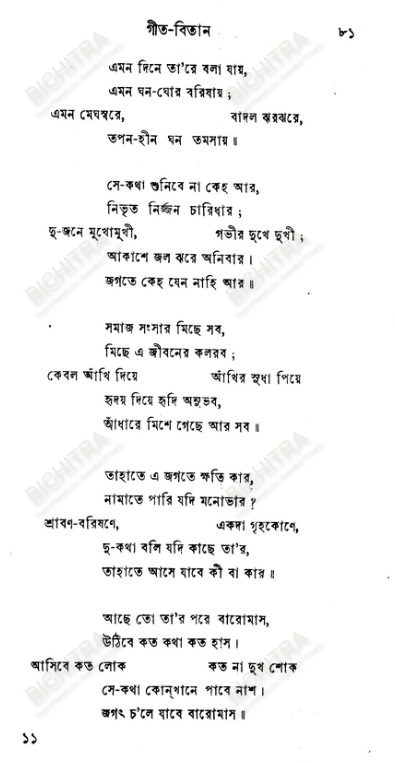 গীত-বিতান ৮১
এমন দিনে তা'রে বলা যায়,
এমন ঘন-ঘোর বরিষায় ;
এমন মেঘস্বরে, বাদল ঝরঝরে,
তপন-হীন ঘন তমসায় ॥
সে-কথা শুনিবে না কেহ আর,
নিভৃত নির্জ্জন চারিধার ;
দু-জনে মুখোমুখী, গভীর দুখে দুখী ;
আকাশে জল ঝরে অনিবার ।
জগতে কেহ যেন নাহি আর ॥
সমাজ সংসার মিছে সব,
মিছে এ জীবনের কলরব ;
কেবল আঁখি দিয়ে আঁখির সুধা পিয়ে
হৃদয় দিয়ে হৃদি অনুভব,
আঁধারে মিশে গেছে আর সব ॥
তাহাতে এ জগতে ক্ষতি কার,
নামাতে পারি যদি মনোভার ?
শ্রাবণ-বরিষণে, একদা গৃহকোণে,
দু-কথা বলি যদি কাছে তা'র,
তাহাতে আসে যাবে কী বা কার ॥
আছে তো তা'র পরে বারোমাস,
উঠিবে কত কথা কত হাস ।
আসিবে কত লোক কত না দুখ শোক
সে-কথা কোন্‌খানে পাবে নাশ ।
জগৎ চ'লে যাবে বারোমাস ॥
১১
BICHITRA
BICHITRA
BICHITRA
BICHITRA
BICHITRA
BICHITRA
BICHITRA
BICHITRA